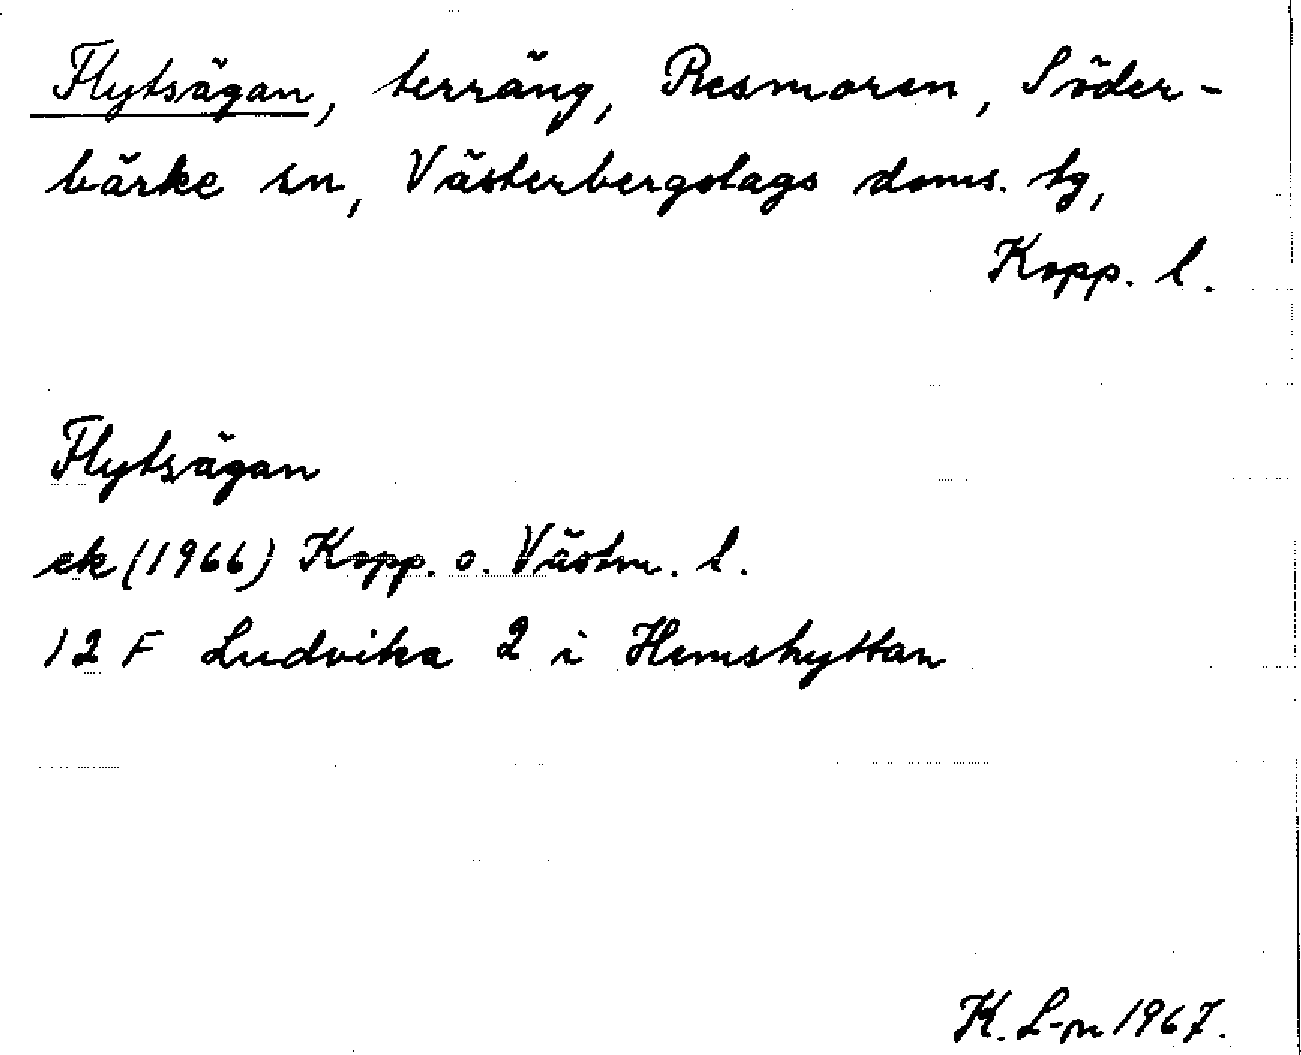 Flytsägan, terräng, Resmoren, Söder-
bärke sn, Västerbergslags doms. tg,
Kopp. l.
Flytsägan
ek (1966) Kopp. o. Västm. l.
12 F Ludvika 2 i Hemshyttan
K. L-m 1967.